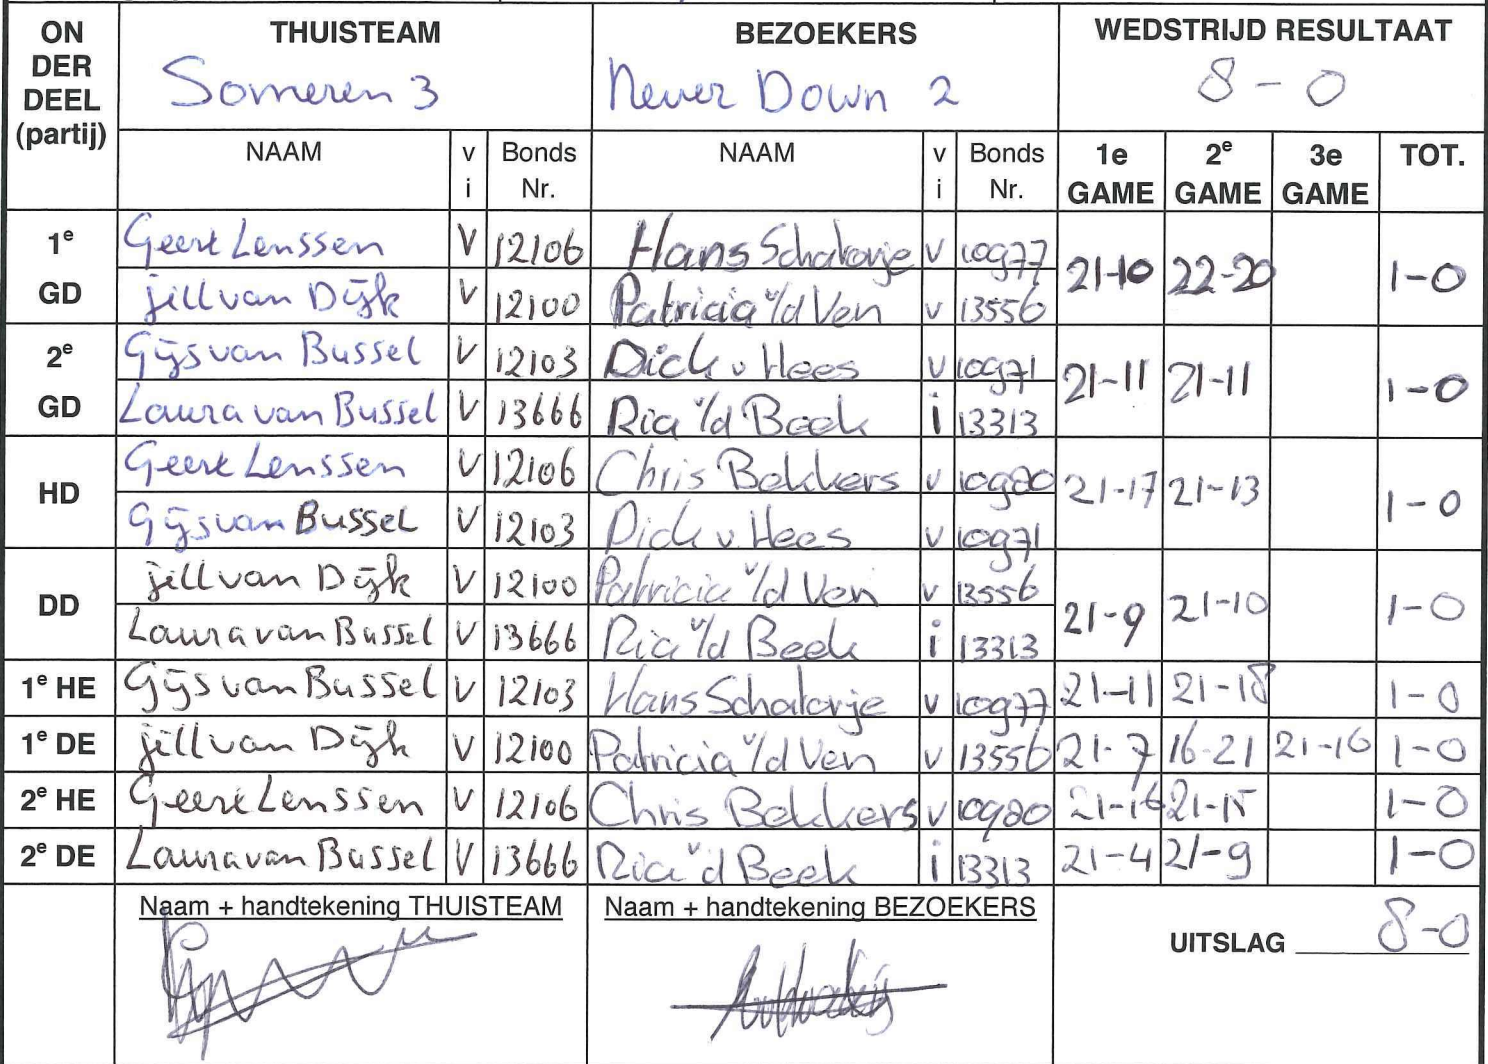 ON DER DEEL (partij) THUISTEAM BEZOEKERS WEDSTRIJD RESULTAAT
Someren 3 Never Down 2 8 - 0
NAAM vi Bonds Nr. NAAM vi Bonds Nr. 1e GAME 2e GAME 3e GAME TOT.
1e GD Geert Lenssen V 12106 Hans Schalovje v 10977 21-10 22-20 1-0
jill van Dijk V 12100 Patricia v/d Ven v 13556
2e GD Gijs van Bussel V 12103 Dick v Hees v 10971 21-11 21-11 1-0
Laura van Bussel V 13666 Ria v/d Beek i 13313
HD Geert Lenssen V 12106 Chris Bekkers v 10980 21-17 21-13 1-0
Gijs van Bussel V 12103 Dick v. Hees v 10971
DD jill van Dijk V 12100 Patricia v/d Ven v 13556 21-9 21-10 1-0
Laura van Bussel V 13666 Ria v/d Beek i 13313
1e HE Gijs van Bussel V 12103 Hans Schalovje v 10977 21-11 21-18 1-0
1e DE jill van Dijk V 12100 Patricia v/d Ven v 13556 21-7 16-21 21-16 1-0
2e HE Geert Lenssen V 12106 Chris Bekkers v 10980 21-16 21-15 1-0
2e DE Laura van Bussel V 13666 Ria v/d Beek i 13313 21-4 21-9 1-0
Naam + handtekening THUISTEAM Naam + handtekening BEZOEKERS
UITSLAG 8-0